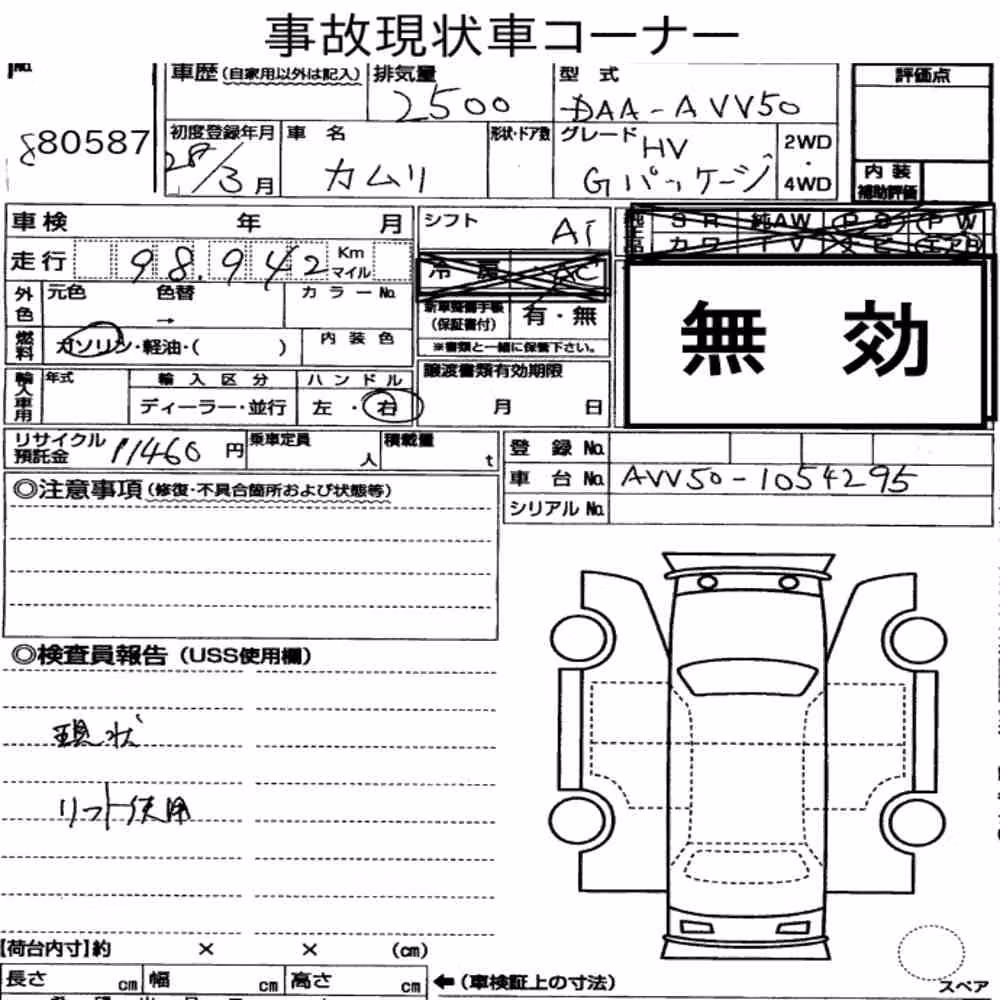 事故現状車コーナー
No.
80587
車歴(自家用以外は記入)
排気量
2500
型 式
DAA-AVV50
評価点
初度登録年月
28/3月
車 名
カムリ
形状・ドア数
グレード
HV
Gパッケージ
2WD
・
4WD
内 装
補助評価
車検 年 月
シフト
AT
S R 純AW P S P W
カワ T V ナビ エアB
走行 98.942 Km マイル
冷 房 AC
無 効
外色 元色 色替 →
カラーNo.
新車整備手帳
(保証書付)
有・無
※書類と一緒に保管下さい。
燃料 ガソリン・軽油・( )
内 装 色
輸入車用 年式
輸 入 区 分
ディーラー・並行
ハンドル
左 ・ 右
譲渡書類有効期限
月 日
リサイクル
預託金
11460 円
乗車定員
人
積載量
t
登 録 No.
車 台 No. AVV50-1054295
シリアル No.
◎注意事項(修復・不具合箇所および状態等)
◎検査員報告(USS使用欄)
現状
リフト使用
【荷台内寸】約 × × (cm)
長さ cm 幅 cm 高さ cm
←(車検証上の寸法)
スペア